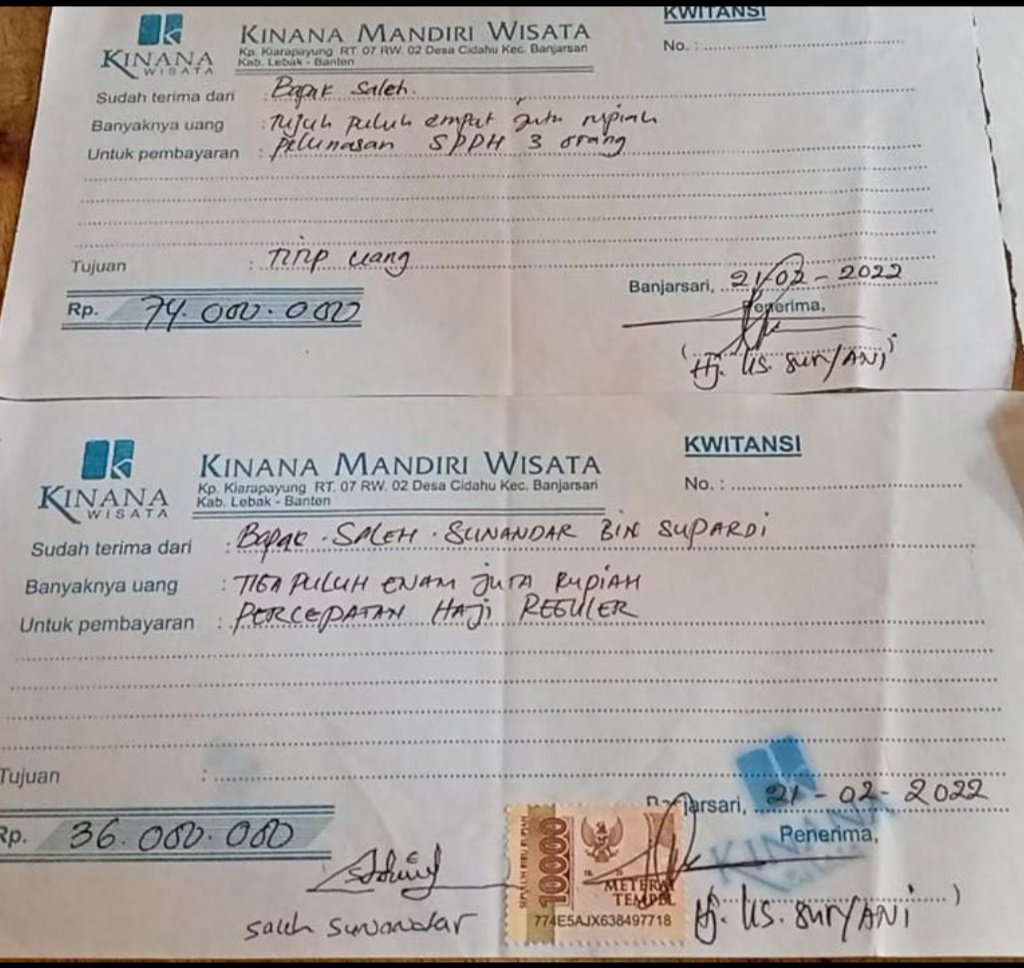 KWITANSI
KINANA WISATA
KINANA MANDIRI WISATA
No. :
Kp. Kiarapayung RT. 07 RW. 02 Desa Cidahu Kec. Banjarsari
Kab. Lebak - Banten
Sudah terima dari : Bapak Saleh.
Banyaknya uang : Tujuh puluh empat juta rupiah
Untuk pembayaran : pelunasan SPPH 3 orang
Tujuan : Titip uang
Banjarsari, 21-02-2022
Rp. 74.000.000
Penerima,
(Hj. IIS. SURYANI)
KWITANSI
KINANA WISATA
KINANA MANDIRI WISATA
No. :
Kp. Kiarapayung RT. 07 RW. 02 Desa Cidahu Kec. Banjarsari
Kab. Lebak - Banten
Sudah terima dari : Bapak . SALEH . SUNANDAR BIN SUPARDI
Banyaknya uang : TIGA PULUH ENAM JUTA RUPIAH
Untuk pembayaran : PERCEPATAN HAJI REGULER
Tujuan :
Banjarsari, 21-02-2022
Rp. 36.000.000
Penerima,
KINANA
SEPULUH RIBU RUPIAH
10000
METERAI
TEMPEL
774E5AJX638497718
saleh sunandar
Hj. IIS. SURYANI)